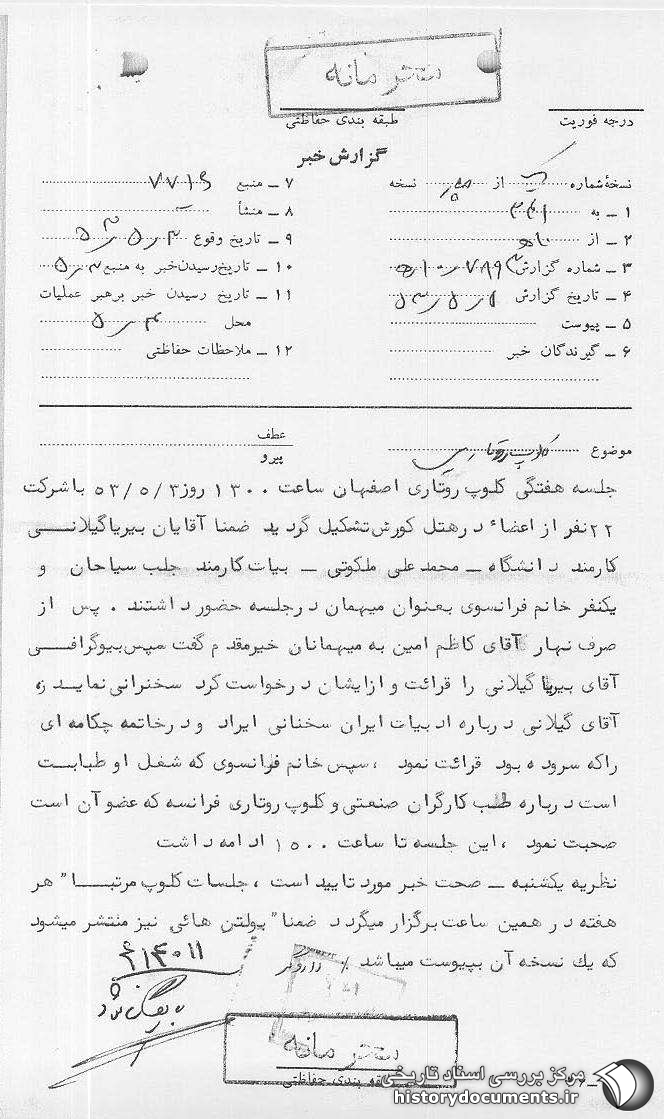 محرمانه
درجه فوریت
طبقه بندی حفاظتی
گزارش خبر
نسخهٔ شماره یک از نسخه
۱ ـ به ۳۴۱
۲ ـ از
۳ ـ شماره گزارش
۴ ـ تاریخ گزارش
۵ ـ پیوست
۶ ـ گیرندگان خبر
۷ ـ منبع ۷۷۱۶
۸ ـ منشأ
۹ ـ تاریخ وقوع
۱۰ ـ تاریخ رسیدن خبر به منبع
۱۱ ـ تاریخ رسیدن خبر برهبر عملیات
محل
۱۲ ـ ملاحظات حفاظتی
موضوع کلوپ روتاری
عطف
پیرو
جلسه هفتگی کلوپ روتاری اصفهان ساعت ۱۳۰۰ روز ۵۳/۵/۳ با شرکت
۲۲ نفر از اعضاء در هتل کورش تشکیل گردید ضمنا آقایان بیریا گیلانـــی
کارمند دانشگاه ـ محمد علی ملکوتی ـ بیات کارمند جلب سیاحان و
یکنفر خانم فرانسوی بعنوان میهمان در جلسه حضور داشتند . پس از
صرف نهار آقای کاظم امین به میهمانان خیرمقدم گفت سپس بیوگرافـــی
آقای بیریا گیلانی را قرائت و از ایشان درخواست کرد سخنرانی نمایند ،
آقای گیلانی درباره ادبیات ایران سخنانی ایراد و در خاتمه چکامه ای
را که سروده بود قرائت نمود ، سپس خانم فرانسوی که شغل او طبابت
است درباره طب کارگران صنعتی و کلوپ روتاری فرانسه که عضو آن است
صحبت نمود ، این جلسه تا ساعت ۱۵۰۰ ادامه داشت
نظریه یکشنبه ـ صحت خبر مورد تایید است ، جلسات کلوپ مرتبـــا" هر
هفته در همین ساعت برگزار میگردد ضمنا" بولتن هائی نیز منتشر میشود
که یك نسخه آن بپیوست میباشد /
محرمانه
طبقه بندی حفاظتی
مرکز بررسی اسناد تاریخی
historydocuments.ir